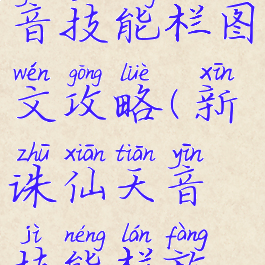 音技能栏图
wén gōng lüè xīn
文攻略(新
zhū xiān tiān yīn
诛仙天音
jì néng lán fàng
技能栏放